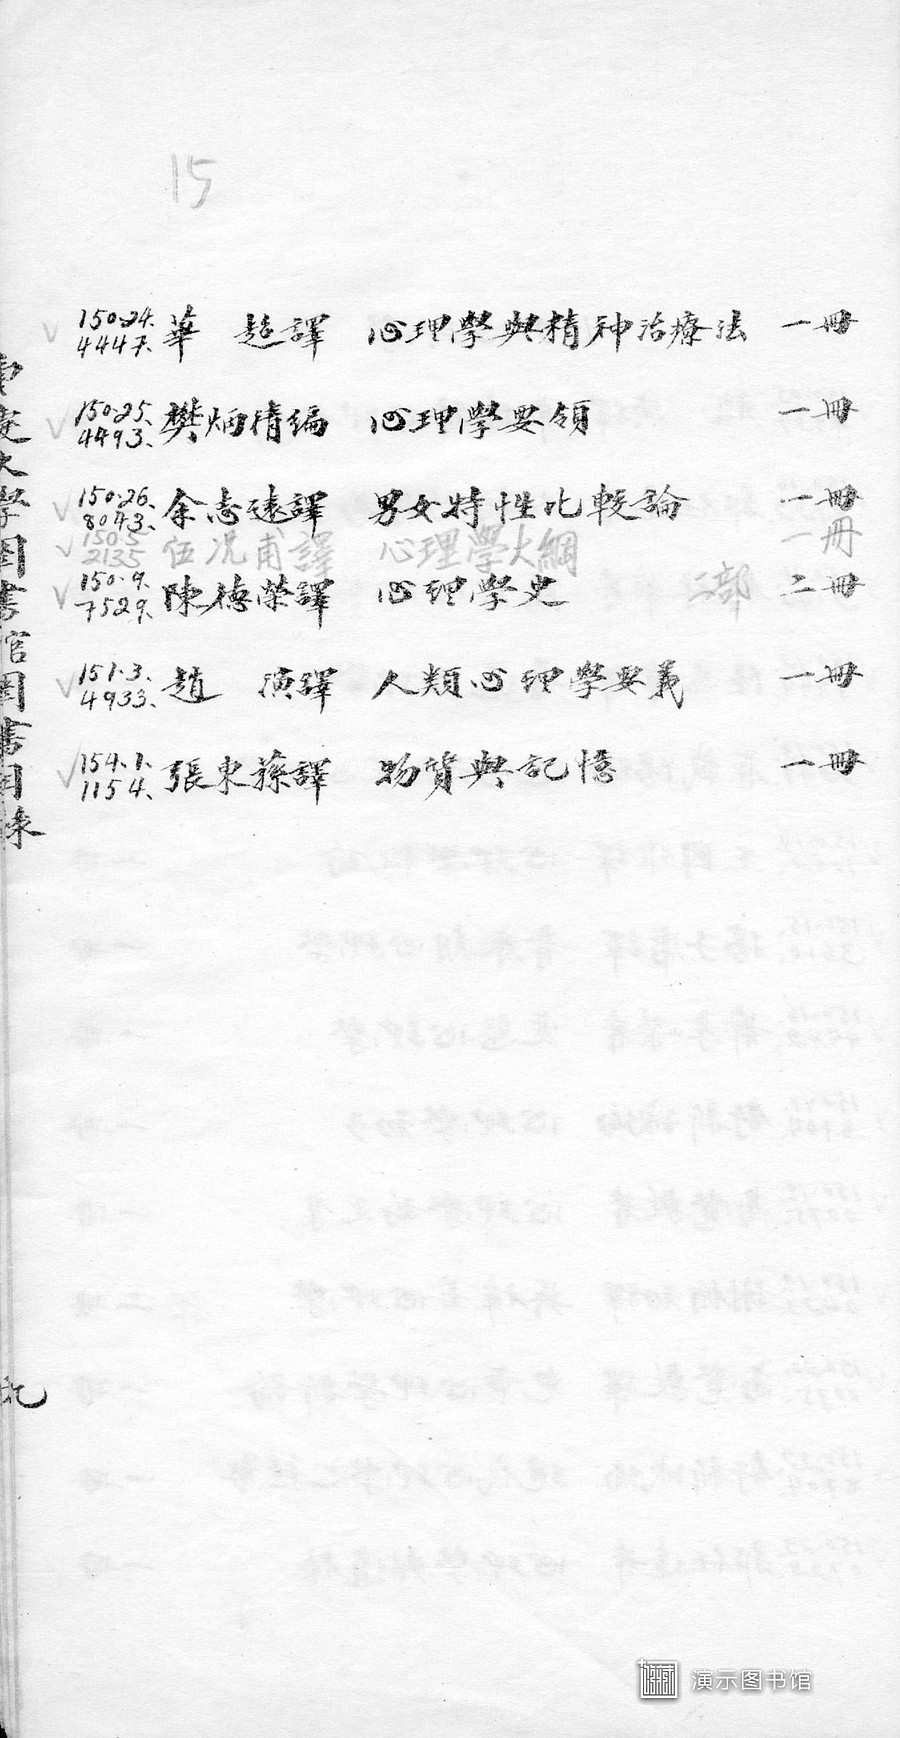 15
150.24. 華 超譯 心理學與精神治療法 一冊
4447.
150.25. 樊炳清編 心理學要領 一冊
4493.
150.26. 余志遠譯 男女特性比較論 一冊
8043.
150.5 伍况甫譯 心理學大綱 一冊
2135
150.9. 陳德榮譯 心理學史 二部 二冊
7529.
151.3. 趙 演譯 人類心理學要義 一冊
4933.
154.1. 張東蓀譯 物質與記憶 一冊
1154.
大學圖書館圖書目錄
演示图书馆